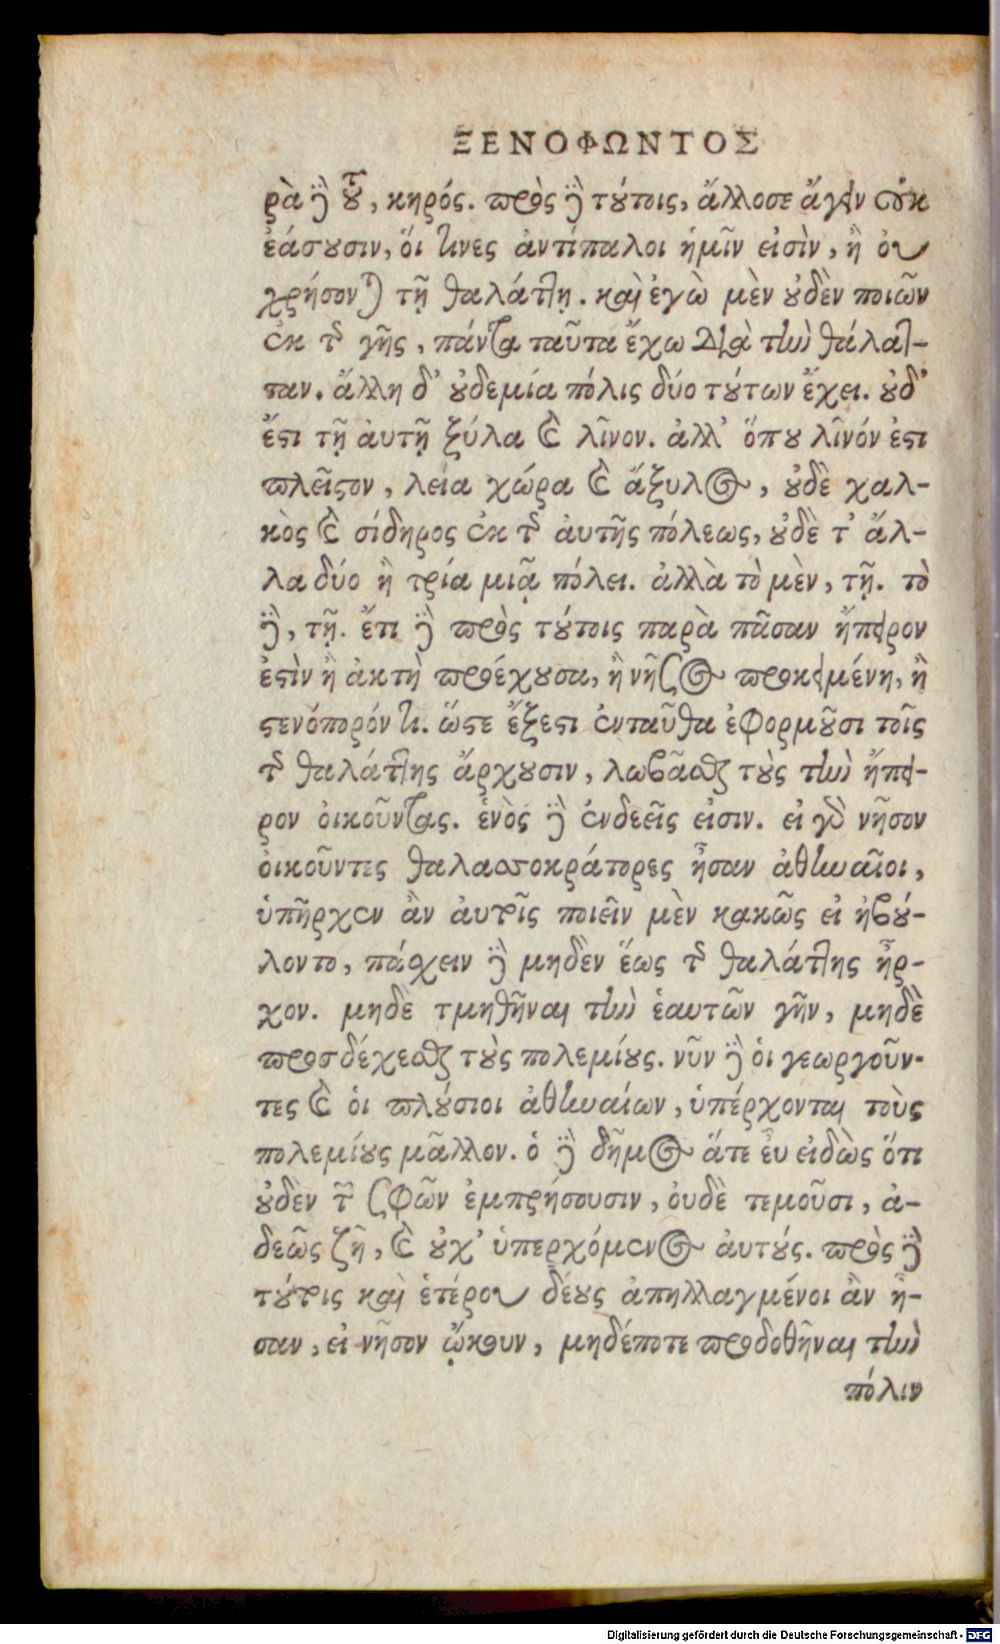 ΞΕΝΟΦΩΝΤΟΣ
ρὰ δὲ τοῦ, κηρός. πρὸς δὲ τούτοις, ἄλλοσε ἄγειν οὐκ
ἐάσουσιν, ὅι τινες ἀντίπαλοι ἡμῖν εἰσὶν, ἢ οὐ
χρήσονται τῇ θαλάττῃ. καὶ ἐγὼ μὲν οὐδὲν ποιῶν
ἐκ τῆς γῆς, πάντα ταῦτα ἔχω διὰ τὴν θάλατ-
ταν. ἄλλη δ' οὐδεμία πόλις δύο τούτων ἔχει. οὐδ'
ἔστι τῇ αὐτῇ ξύλα καὶ λῖνον. ἀλλ' ὅπου λῖνόν ἐστι
πλεῖστον, λεία χώρα καὶ ἄξυλος, οὐδὲ χαλ-
κὸς καὶ σίδηρος ἐκ τῆς αὐτῆς πόλεως, οὐδὲ τ' ἄλ-
λα δύο ἢ τρία μιᾷ πόλει. ἀλλὰ τὸ μὲν, τῇ. τὸ
δὲ, τῇ. ἔτι δὲ πρὸς τούτοις παρὰ πᾶσαν ἤπειρον
ἐστὶν ἢ ἀκτὴ προέχουσα, ἢ νῆσος προκειμένη, ἢ
στενόπορόν τι. ὥστε ἔξεστι ἐνταῦθα ἐφορμοῦσι τοῖς
τῆς θαλάττης ἄρχουσιν, λωβᾶσθαι τοὺς τὴν ἤπει-
ρον οἰκοῦντας. ἑνὸς δὲ ἐνδεεῖς εἰσιν. εἰ γὰρ νῆσον
οἰκοῦντες θαλασσοκράτορες ἦσαν ἀθηναῖοι,
ὑπῆρχεν ἂν αὐτοῖς ποιεῖν μὲν κακῶς εἰ ἠβού-
λοντο, πάσχειν δὲ μηδὲν ἕως τῆς θαλάττης ἦρ-
χον. μηδὲ τμηθῆναι τὴν ἑαυτῶν γῆν, μηδὲ
προσδέχεσθαι τοὺς πολεμίους. νῦν δὲ ὁι γεωργοῦν-
τες καὶ ὁι πλούσιοι ἀθηναίων, ὑπέρχονται τοὺς
πολεμίους μᾶλλον. ὁ δὲ δῆμος ἅτε ἐυ εἰδὼς ὅτι
οὐδὲν τῶν σφῶν ἐμπρήσουσιν, ὀυδὲ τεμοῦσι, ἀ-
δεῶς ζῆ, καὶ οὐχ' ὑπερχόμενος αὐτούς. πρὸς δὲ
τούτοις καὶ ἑτέρου δέους ἀπηλλαγμένοι ἂν ἦ-
σαν, εἰ νῆσον ᾤκουν, μηδέποτε προδοθῆναι τὴν
πόλιν
Digitalisierung gefördert durch die Deutsche Forschungsgemeinschaft - DFG